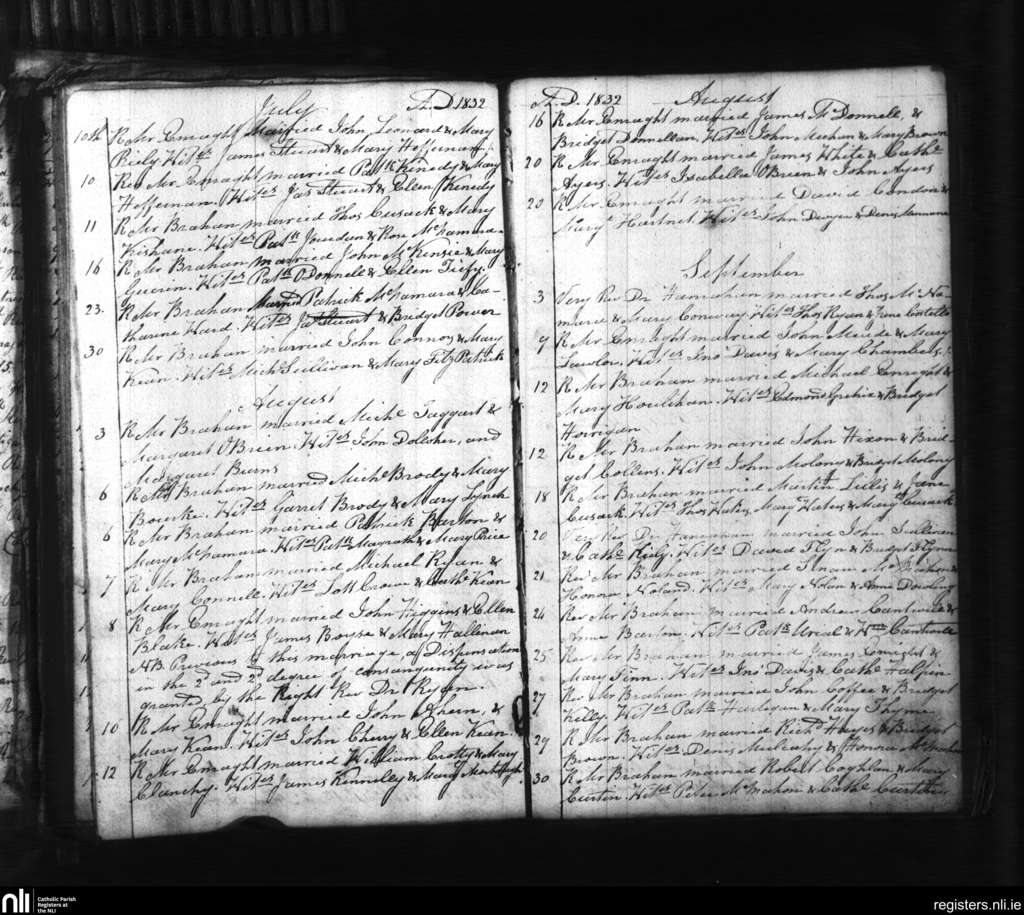 July A.D. 1832
10th R Mr Enraght Married John Leonard & Mary
Riely Wit.es James Steuart & Mary Heffernan
10 Rev Mr Enraght married Patk Kenedy & Mary
Heffernan. Wit.es Jas Steuart & Ellen Kenedy
11 R Mr Brahan married Thos Cusack & Mary
Kishane. Wit.es Patk & Rose McNamara
16 R Mr Brahan married John McKensie & Mary
Guerin. Wit.es Patk O'Donnell & Ellen
23. R Mr Brahan Married Patrick McNamara & Ca-
tharine Ward. Wit.es Jas Steuart & Bridget Power
30 R Mr Brahan married John Connors & Mary
Kean. Wit.es Mich Sullivan & Mary FitzPatrick
August
3 R Mr Brahan married Michl Taggart &
Margaret O'Brien. Wit.es John and
Margaret Burns
6 R Mr Brahan married Michl Brody & Mary
Bourke. Wit.es Garret Brody & Mary Lynch
6 R Mr Brahan married Patrick Barton &
Mary McNamara. Wit.es Patk Magrath & Mary Price
7 R Mr Brahan married Michael Ryan &
Mary Connell. Wit.es Lott Crowe & Cathe Kean
8 R Mr Enraght married John Higgins & Ellen
Blake. Wit.es James Bouse & Mary Hallinan
NB. Previous to this marriage a Dispensation
in the 2d and 2d degree of consanguinity was
granted by the Right Rev Dr Ryan.
10 R Mr Enraght married John Ahern, &
Mary Kean. Wit.es John Chery & Ellen Kean
12 R Mr Enraght married William Crotty & Mary
Clanchy. Wit.es James Kinneley & Mary
A.D. 1832 August
16 R Mr Enraght married James McDonnell, &
Bridget Donnellan. Wit.es John Meehan & Mary Brown
20 R Mr Enraght married James White & Cathe
Ayers. Wit.es Isabella O'Brien & John Ayers
20 R Mr Enraght married David Condon &
Mary Hartnet. Wit.es John Dwyer & Denis
September
3 Very Rev Dr Hanrahan married Thos McNa-
mara & Mary Conway. Wit.es Thos Ryan & Jane Costello
9 R Mr Enraght married John Meade & Mary
Lawlor. Wit.es Jno Davis & Mary Chambers.
12 R Mr Brahan married Michael Enraght &
Mary Houlihan. Wit.es Edmond & Bridget
Horrigan
12 R Mr Brahan married John Hixon & Brid-
get Collins. Wit.es John Molony & Bridget Molony
18 R Mr Brahan married Martin Lillis & Jane
Cusack. Wit.es Thos Waters, Mary Waters & Mary Cusack
20 Very Rev Dr Hanrahan married John Sullivan
& Cathe Riely. Wit.es David Flyn & Bridget Flynn
21 Rev Mr Brahan married McMahon &
Honora Noland. Wit.es Mary Nolan & Anne Dowling
24 Rev Mr Brahan married Andrew Cantwell &
Anne Barton. Wit.es Patk & Wm Cantwell
25 Rev Mr Brahan married James Enraght &
Mary Finn. Wit.es Jno Davis & Cathe Halpin
27 Rev Mr Brahan married John Coffee & Bridget
Kelly. Wit.es Patk Hartigan & Mary Thyme
29 R Mr Brahan married Richd Hayes & Bridget
Brown. Wit.es Denis Mulcahy & Honora McMahon
30 R Mr Brahan married Robert Coghlan & Mary
Curtin. Wit.es Peter McMahon & Cathe
nli Catholic Parish
Registers at
the NLI
registers.nli.ie